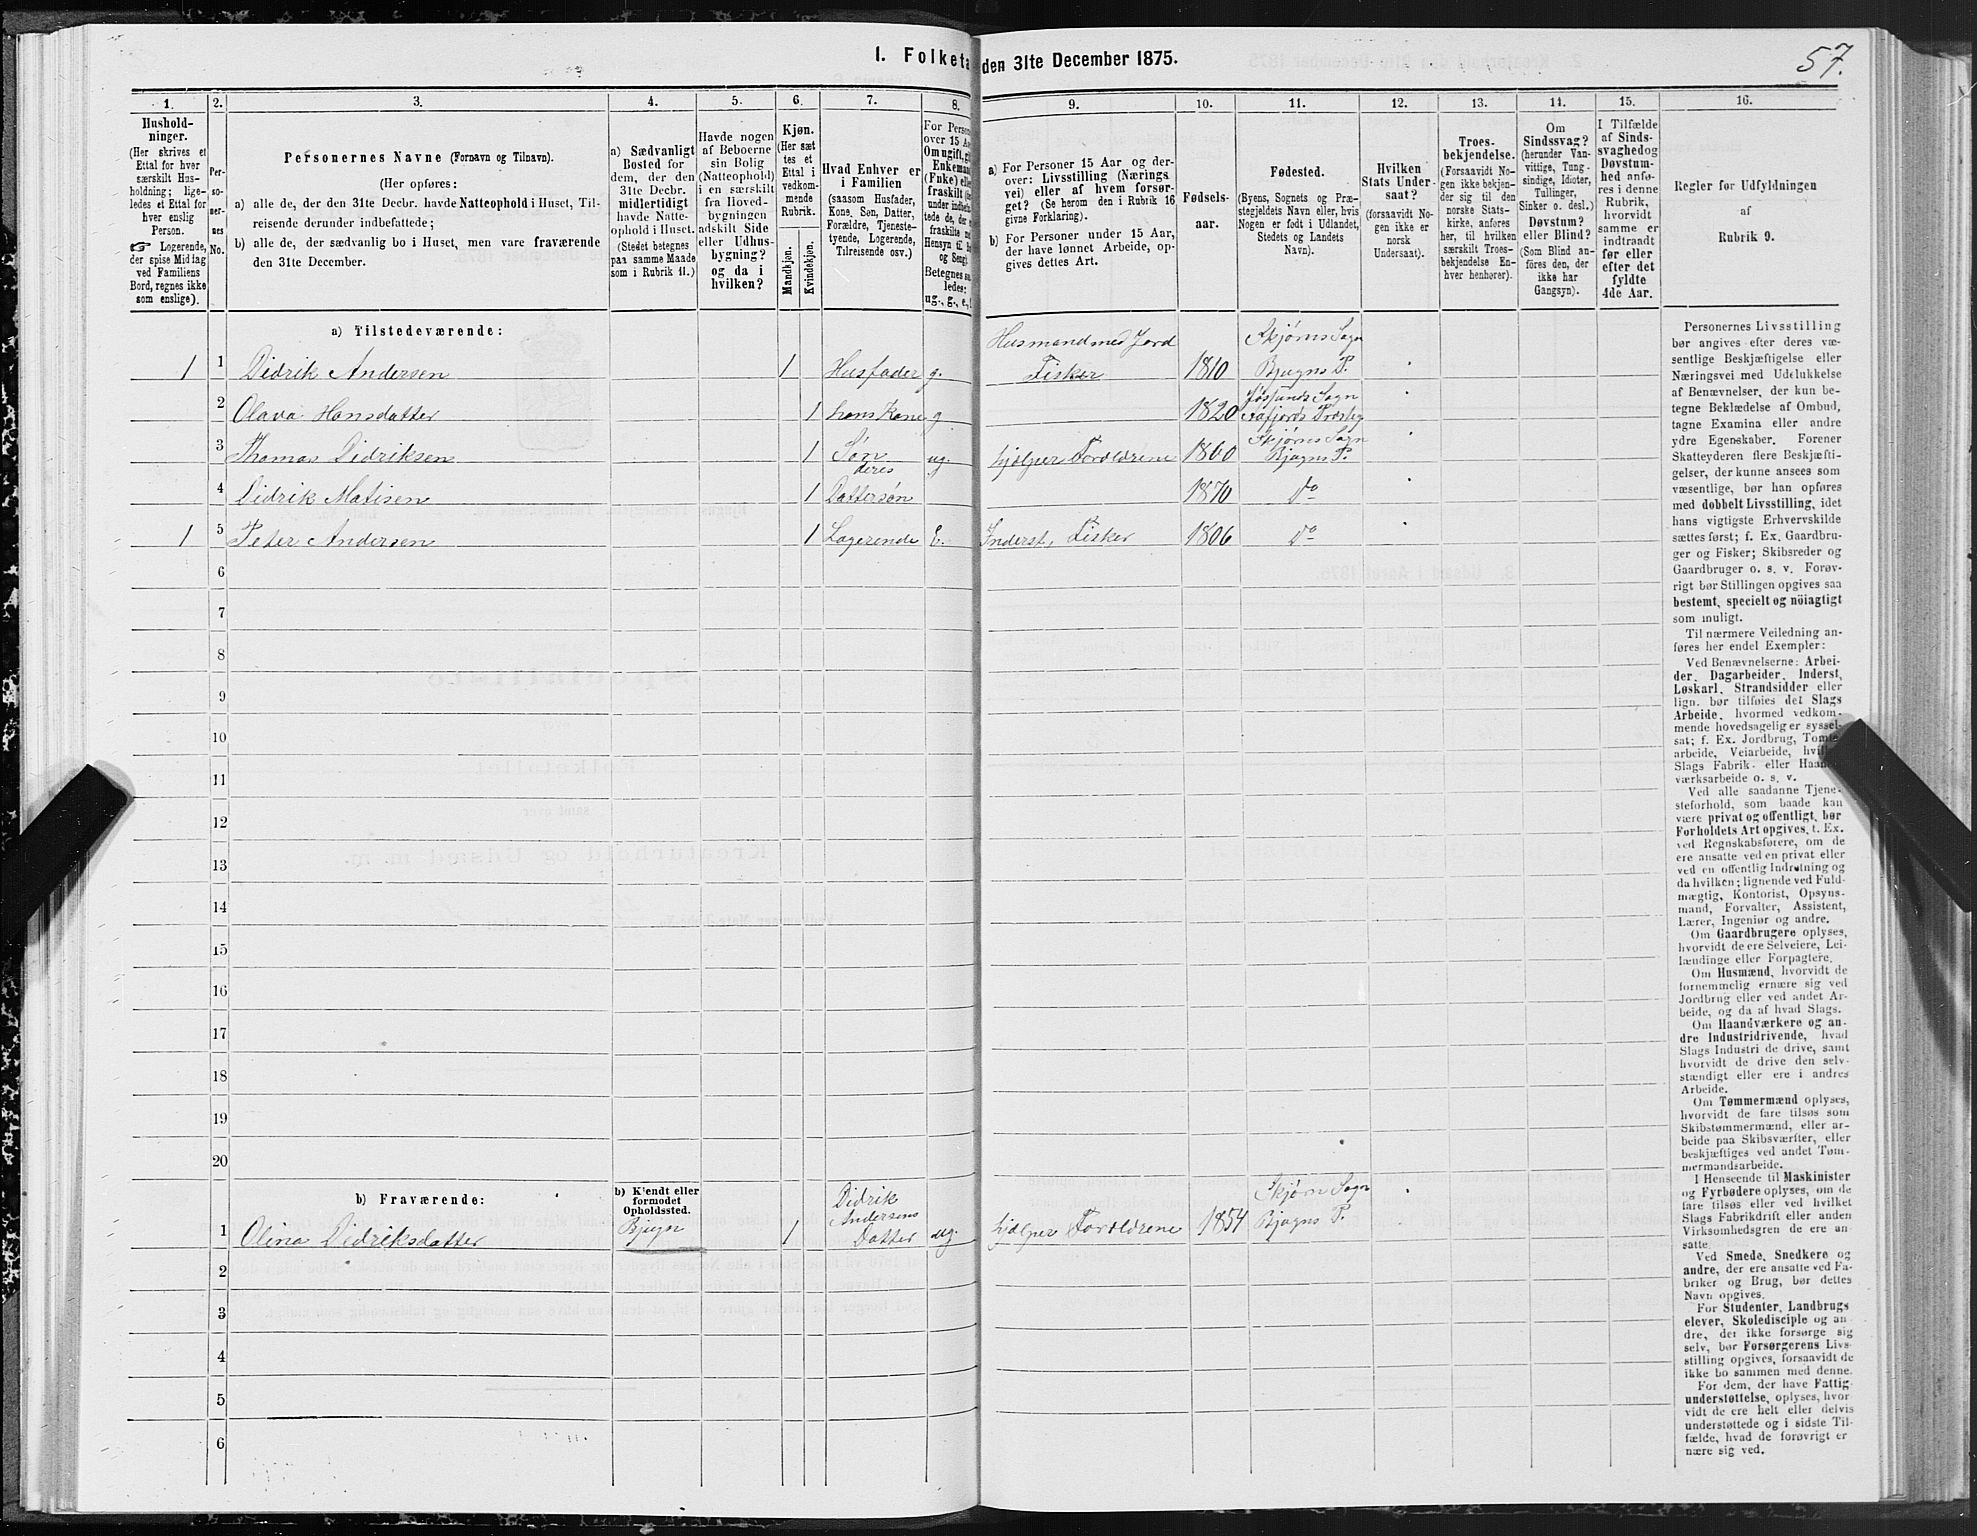 1. Folketa den 31te December 1875.
57.
1.
2.
3.
4.
5.
6.
7.
8.
9.
10.
11.
12.
13.
14.
15.
16.
Hushold-
ninger.
(Her skrives et
Ettal for hver
særskilt Hus-
holdning; lige-
ledes et Ettal for
hver enslig
Person.
☞ Logerende,
der spise Middag
ved Familiens
Bord, regnes ikke
som enslige).
Per-
so-
ner-
nes
No.
Personernes Navne (Fornavn og Tilnavn).
(Her opføres:
a) alle de, der den 31te Decbr. havde Natteophold i Huset, Til-
reisende derunder indbefattede;
b) alle de, der sædvanlig bo i Huset, men vare fraværende
den 31te December.
a) Sædvanligt
Bosted for
dem, der den
31te Decbr.
midlertidigt
havde Natte-
ophold i Huset.
(Stedet betegnes
paa samme Maade
som i Rubrik 11.)
Havde nogen
af Beboerne
sin Bolig
(Natteophold)
i en særskilt
fra Hoved-
bygningen
adskilt Side
eller Udhus-
bygning?
og da i
hvilken?
Kjøn.
(Her sæt-
tes et
Ettal i
vedkom-
mende
Rubrik.
Mandkjøn.
Kvindekjøn.
Hvad Enhver er
i Familien
(saasom Husfader,
Kone, Søn, Datter,
Forældre, Tjeneste-
tyende, Logerende,
Tilreisende osv.)
For Person
over 15 Aa
Om ugift, g
Enkeman
(Fnke) elle
fraskilt (
under indbe
tede de, der
fraskilte m
Hensyn til b
og Seng).
Betegnes sa
ledes:
ug., g., e., f
a) For Personer 15 Aar og der-
over: Livsstilling (Nærings
vei) eller af hvem forsør-
get? (Se herom den i Rubrik 16
givne Forklaring).
b) For Personer under 15 Aar,
der have lønnet Arbeide, op-
gives dettes Art.
Fødsels-
aar.
Fødested.
(Byens, Sognets og Præ-
stegjeldets Navn eller, hvis
Nogen er født i Udlandet,
Stedets og Landets
Navn).
Hvilken
Stats Under-
saat?
(forsaavidt No-
gen ikke er
norsk
Undersaat).
Troes-
bekjendelse.
(Forsaavidt No-
gen ikke bekjen-
der sig til den
norske Stats-
kirke, anføres
her, til hvilken
særskilt Troes-
bekjendelse En-
hver henhører).
Om
Sindssvag?
(herunder Van-
vittige, Tung-
sindige, Idioter,
Tullinger,
Sinker o. desl.)
Døvstum?
eller Blind?
(Som Blind an-
føres den, der
ikke har
Gangsyn).
I Tilfælde
af Sinds-
svaghed og
Døvstum-
hed anfø-
res i denne
Rubrik,
hvorvidt
samme er
indtraadt
før eller
efter det
fyldte
4de Aar.
Regler før Udfyldningen
af
Rubrik 9.
a) Tilstedeværende:
1 1 Didrik Andersen 1 Husfader g. Husmand med Jord Fisker 1810 Skjørns Sogn Bjugns P.
2 Olava Hansdatter 1 hans Kone g 1820 Jøssunds Sogn Aafjords Presteg
3 Thomas Didriksen 1 Søn ug. hjelper Forældrene 1860 Skjørns Sogn Bjugns P.
4 Didrik Matisen 1 deres Dattersøn 1870 Do
1 5 Peter Andersen 1 Logerende E. Inderst, Fisker 1806 Do
6
7
8
9
10
11
12
13
14
15
16
17
18
19
20
b) Fraværende:
b) Kjendt eller
formodet
Opholdssted.
1 Olina Didriksdatter Bjugn 1 Didrik Andersens Datter ug. hjelper Forældrene 1854 Skjørn Sogn Bjugns P.
2
3
4
5
6
Personernes Livsstilling
bør angives efter deres væ-
sentlige Beskjæftigelse eller
Næringsvei med Udelukkelse
af Benævnelser, der kun be-
tegne Beklædelse af Ombud,
tagne Examina eller andre
ydre Egenskaber. Forener
Skatteyderen flere Beskjæfti-
gelser, der kunne ansees som
væsentlige, bør han opføres
med dobbelt Livsstilling, idet
hans vigtigste Erhvervskilde
sættes først; f. Ex. Gaardbru-
ger og Fisker; Skibsreder og
Gaardbruger o. s. v. Forøv-
rigt bør Stillingen opgives saa
bestemt, specielt og nöiagtigt
som muligt.
Til nærmere Veiledning an-
føres her endel Exempler:
Ved Benævnelserne: Arbei-
der, Dagarbeider, Inderst,
Løskarl, Strandsidder eller
lign. bør tilføies det Slags
Arbeide, hvormed vedkom-
mende hovedsagelig er syssel-
sat; f. Ex. Jordbrug, Tomte-
arbeide, Veiarbeide, hvilket
Slags Fabrik- eller Haand-
værksarbeide o. s. v.
Ved alle saadanne Tjene-
steforhold, som baade kan
være privat og offentligt, bør
Forholdets Art opgives, t. Ex.
ved Regnskabsførere, om de
ere ansatte ved en privat eller
ved en offentlig Indretning og
da hvilken; lignende ved Fuld-
mægtig, Kontorist, Opsyns-
mand, Forvalter, Assistent,
Lærer, Ingeniør og andre.
Om Gaardbrugere oplyses,
hvorvidt de ere Selveiere, Lei-
lændinge eller Forpagtere.
Om Husmænd, hvorvidt de
fornemmelig ernære sig ved
Jordbrug eller ved andet Ar-
beide, og da af hvad Slags.
Om Haandværkere og an-
dre Industridrivende, hvad
Slags Industri de drive, samt
hvorvidt de drive den selv-
stændigt eller ere i andres
Arbeide.
Om Tømmermænd oplyses,
hvorvidt de fare tilsøs som
Skibstømmermænd, eller ar-
beide paa Skibsværfter, eller
beskjæftiges ved andet Tøm-
mermandsarbeide.
I Henseende til Maskinister
og Fyrbødere oplyses, om de
fare tilsøs eller ved hvilket
Slags Fabrikdrift eller anden
Virksomhedsgren de ere an-
satte.
Ved Smede, Snedkere og
andre, der ere ansatte ved Fa-
briker og Brug, bør dettes
Navn opgives.
For Studenter, Landbrugs
elever, Skoledisciple og an
dre, der ikke forsørge sig
selv, bør Forsørgerens Livs-
stilling opgives, forsaavidt de
ikke bo sammen med denne.
For dem, der have Fattig-
understøttelse, oplyses, hvor-
vidt de ere helt eller delvis
understøttede og i sidste Til-
fælde, hvad de forøvrigt er
nære sig ved.